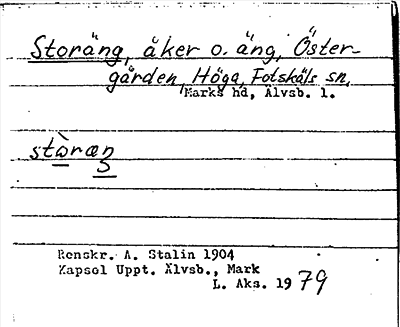 Storäng, åker o. äng, Öster-
gården, Höga, Fotskäls sn,
Marks hd, Älvsb. l.
stὼræŋ
Renskr. A. Stalin 1904
Kapsol Uppt. Älvsb., Mark
L. Aks. 1979